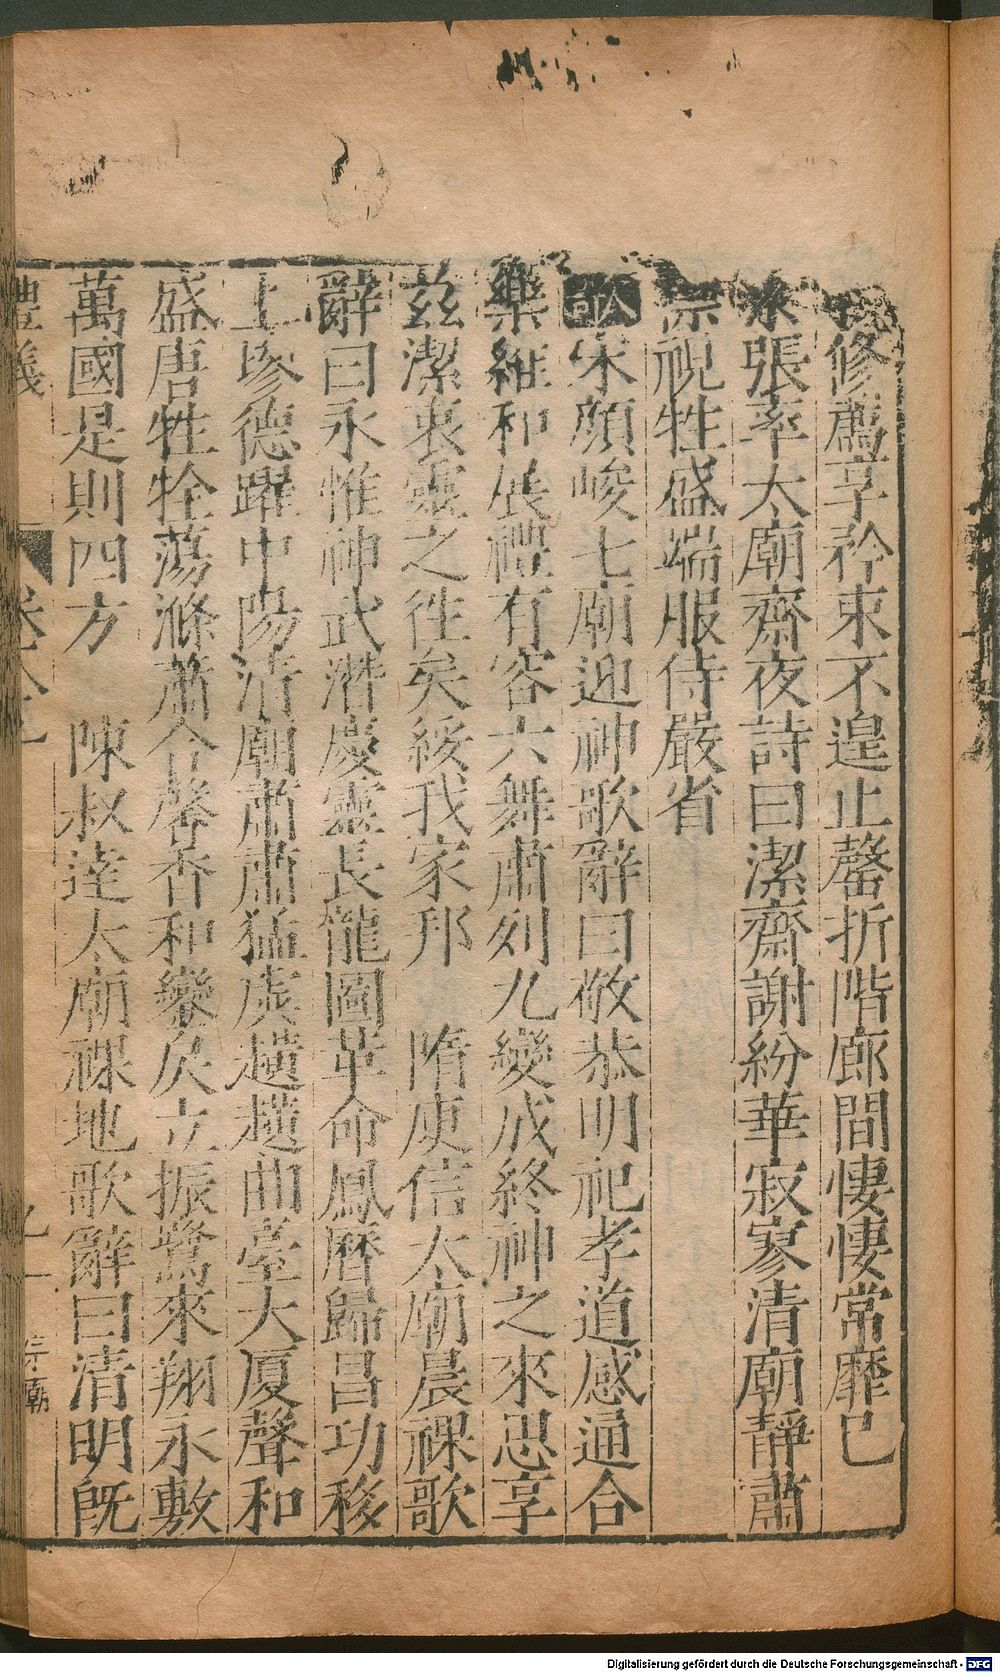 修薦享矜束不遑止罄折階廊間悽悽常靡已
張率太廟齋夜詩曰潔齋謝紛華寂寥清廟靜肅
視牲盛端服侍嚴省
歌宋顏峻七廟迎神歌辭曰敬恭明祀孝道感通合
樂維和展禮有容六舞肅列九變成終神之來思享
茲潔衷靈之往矣綏我家邦　隋庾信太廟晨祼歌
辭曰永惟神武潛慶靈長龍圖革命鳳曆歸昌功移
上墋德躍中陽清廟肅肅猛虡趪趪曲臺大厦聲和
盛唐牲牷蕩滌蕭合馨香和鑾戾立振鷺來翔永敷
萬國是則四方　陳叔逵太廟祼地歌辭曰清明旣
禮儀
宗廟
Digitalisierung gefördert durch die Deutsche Forschungsgemeinschaft - DFG